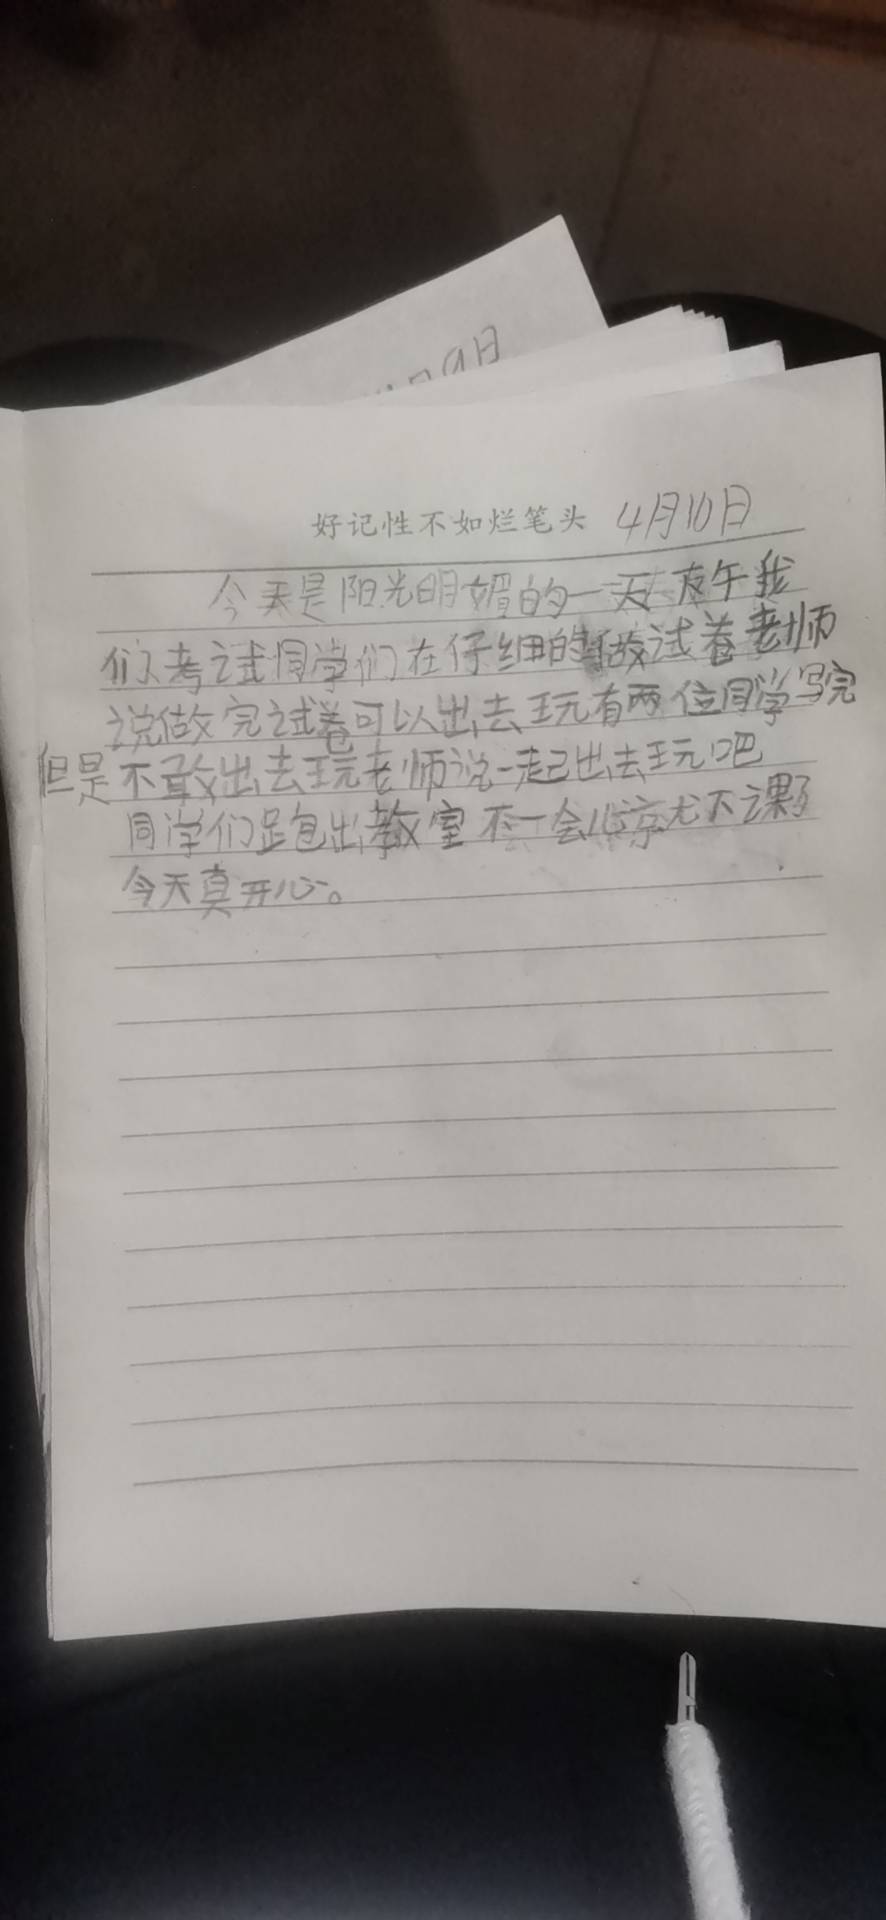 9日
好记性不如烂笔头 4月10日
今天是阳光明媚的一天 下午我
们考试同学们在仔细的做试卷老师
说做完试卷可以出去玩有两位同学写完
但是不敢出去玩老师说一起出去玩吧
同学们跑出教室不一会儿京尤下课了
今天真开心。